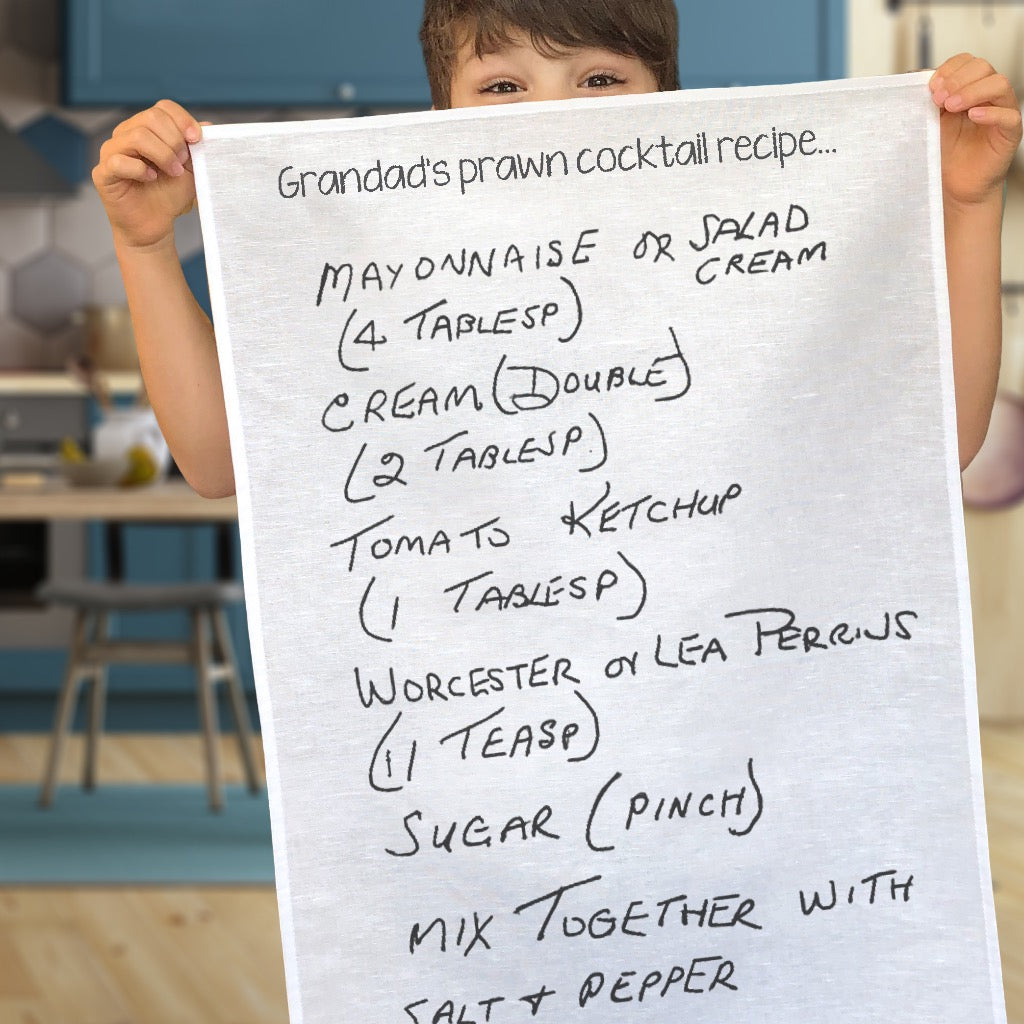 Grandad's prawn cocktail recipe...
MAYONNAISE OR SALAD
CREAM
(4 TABLESP)
CREAM (DOUBLE)
(2 TABLESP.)
TOMATO KETCHUP
(1 TABLESP)
WORCESTER or LEA PERRINS
(1 TEASP)
SUGAR (PINCH)
MIX TOGETHER WITH
SALT + PEPPER